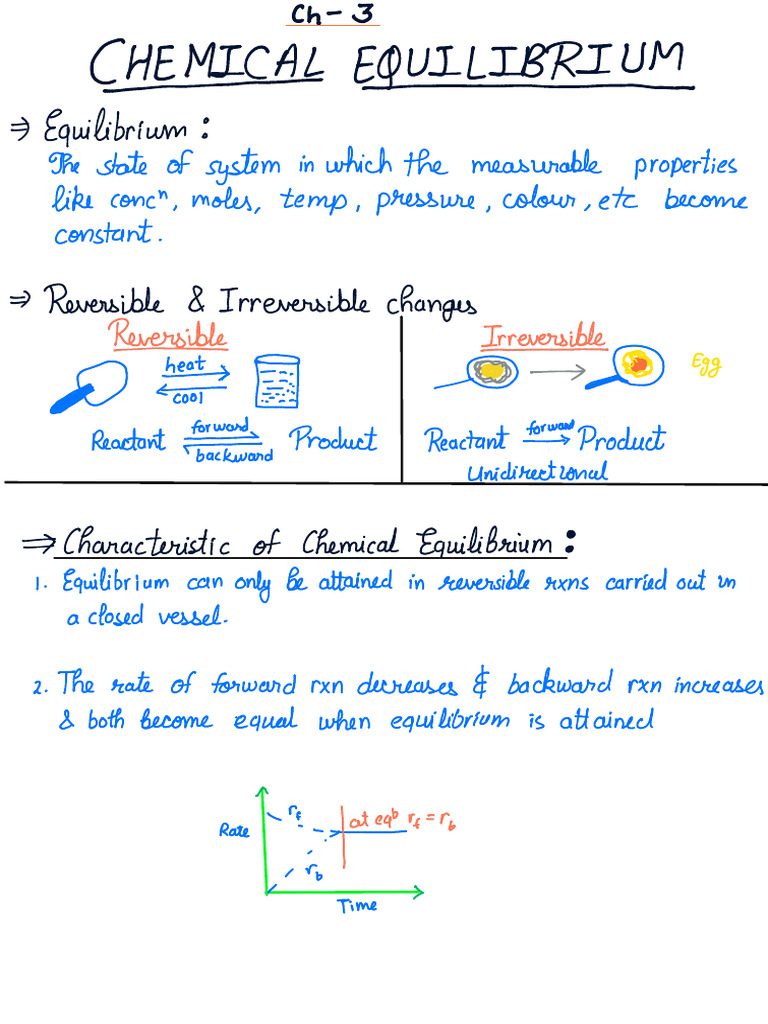 Ch-3
CHEMICAL EQUILIBRIUM
⇒ Equilibrium:
The state of system in which the measurable properties
like concⁿ, moles, temp, pressure, colour, etc become
constant.
⇒ Reversible & Irreversible changes
Reversible
heat
cool
Reactant forward Product
backward
Irreversible
Egg
Reactant forward Product
Unidirectional
⇒ Characteristic of Chemical Equilibrium:
1. Equilibrium can only be attained in reversible rxns carried out in
a closed vessel.
2. The rate of forward rxn decreases & backward rxn increases
& both become equal when equilibrium is attained
Rate
r_f
at eq^b r_f = r_b
r_b
Time